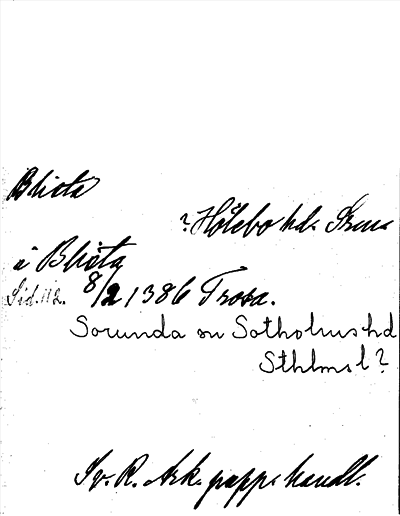 Blista
? Hölebo hd. Srml
i Blista
Sid. 112. 8/2 1386 Trosa.
Sorunda sn Sotholms hd
Sthlms l ?
Sv. R. Ark. papp. handl.